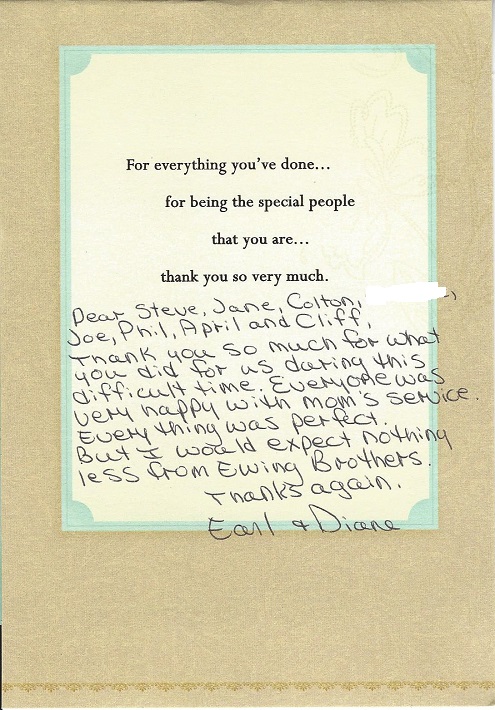 For everything you've done...
for being the special people
that you are...
thank you so very much.
Dear Steve, Jane, Colton,          ,
Joe, Phil, April and Cliff,
Thank you so much for what
you did for us during this
difficult time. Everyone was
very happy with mom's service.
Every thing was perfect.
But I would expect nothing
less from Ewing Brothers.
Thanks again.
Earl & Diane